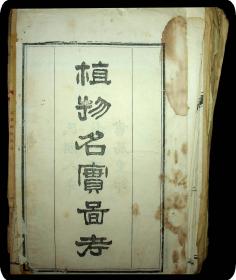 植物名實圖考